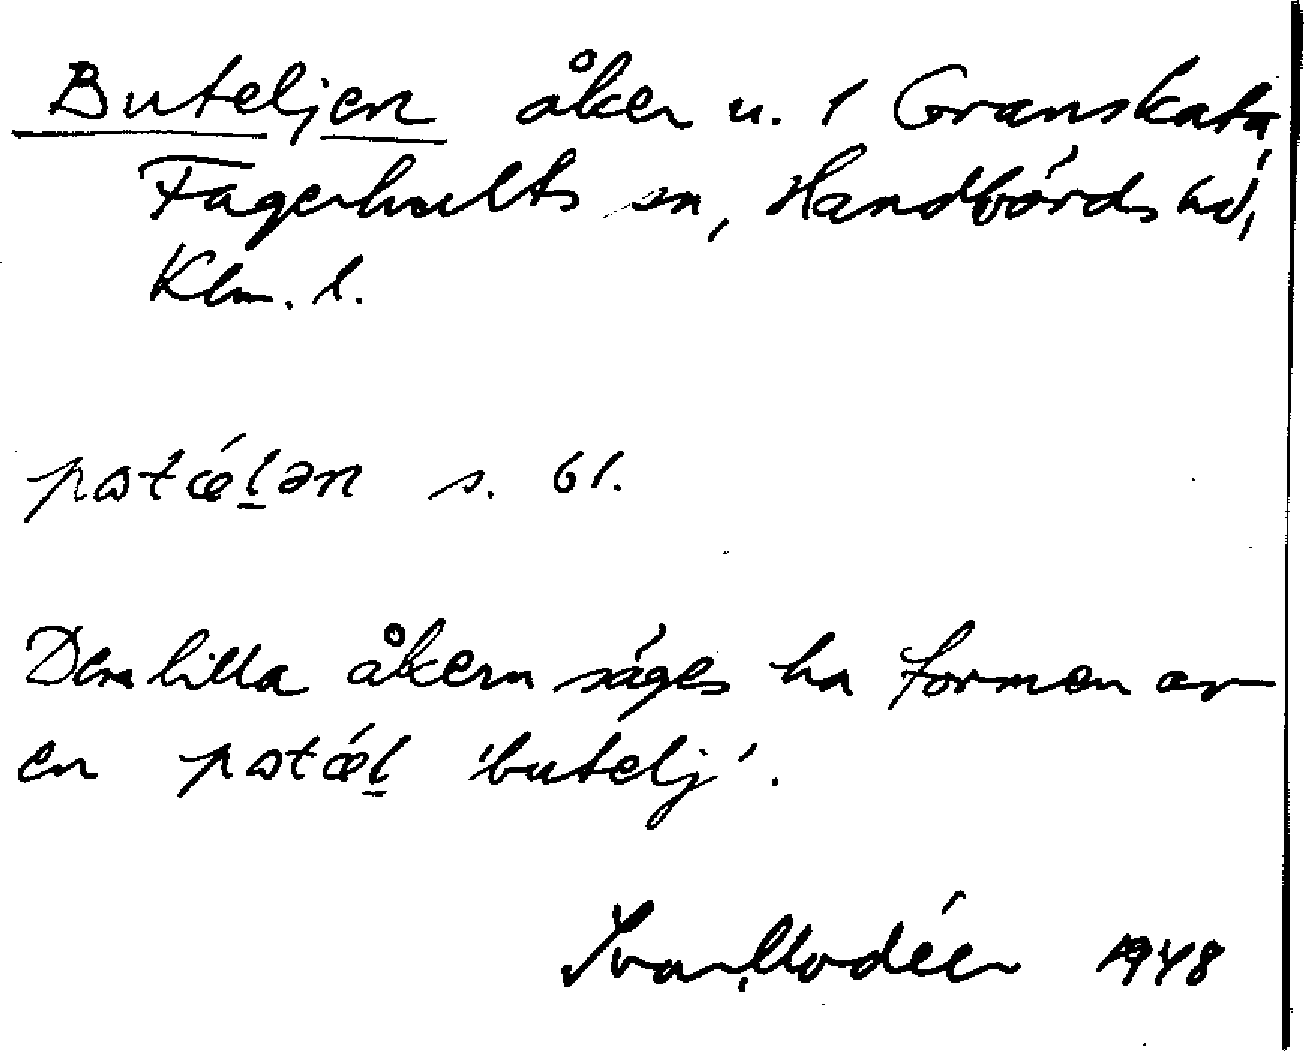 Buteljen åker u. 1 Granskata,
Fagerhults sn, Handbörds hd,
Klm. l.
patǽl̠ən s. 61.
Den lilla åkern säges ha formen av
en patǽl̠ 'butelj'.
Ivar Modéer 1948